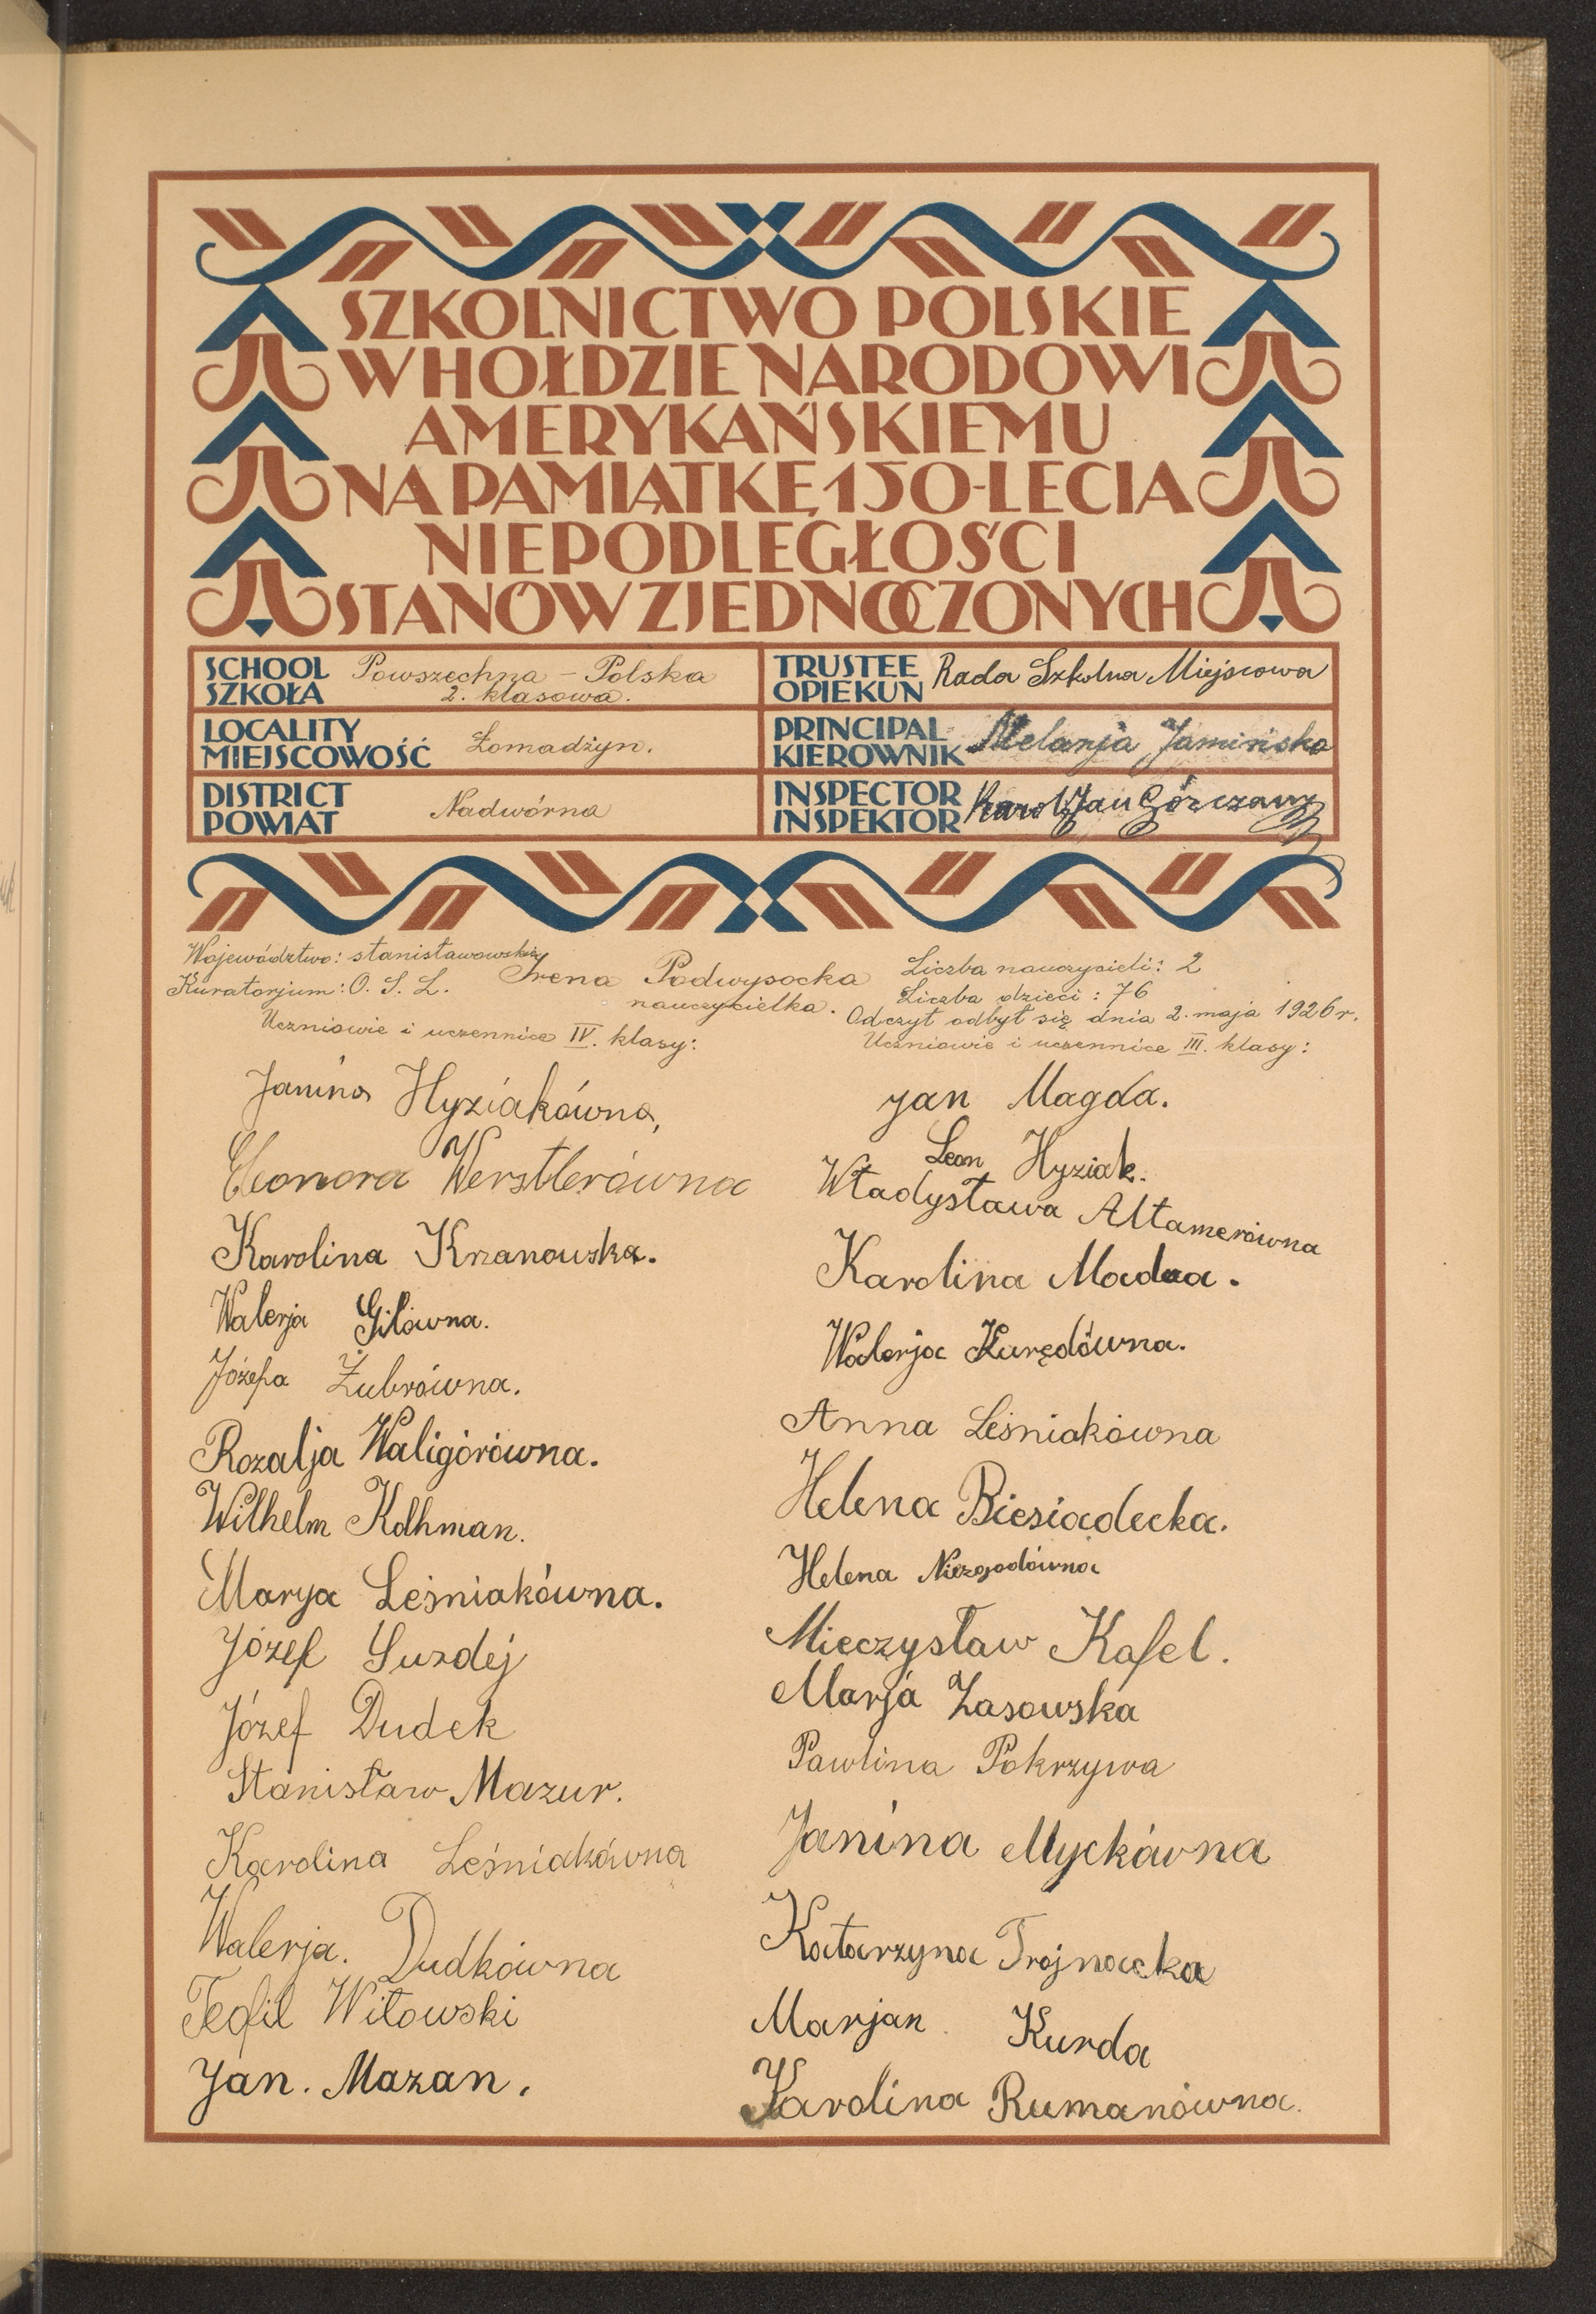 SZKOLNICTWO POLSKIE
W HOŁDZIE NARODOWI
AMERYKAŃSKIEMU
NA PAMIĄTKĘ 150-LECIA
NIEPODLEGŁOŚCI
STANÓW ZJEDNOCZONYCH
SCHOOL
SZKOŁA
Powszechna - Polska
2. klasowa.
TRUSTEE
OPIEKUN
Rada Szkolna Miejscowa
LOCALITY
MIEJSCOWOŚĆ
Łomadżyn.
PRINCIPAL
KIEROWNIK
Melanja Jamińska
DISTRICT
POWIAT
Nadwórna
INSPECTOR
INSPEKTOR
Karol Jan Górczany
Województwo: stanisławowskie
Kuratorjum: O. S. L.
Irena Podwysocka
nauczycielka.
Liczba nauczycieli: 2
Liczba dzieci: 76
Odczyt odbył się dnia 2. maja 1926 r.
Uczniowie i uczennice IV. klasy:
Janina Hyziakówna,
Eleonora Werstlerówna
Karolina Krzanowska.
Walerja Gilówna.
Józefa Żubrówna.
Rozalja Waligórówna.
Wilhelm Kolhman.
Marya Leśniakówna.
Józef Guzdej
Józef Dudek
Stanisław Mazur.
Karolina Leśniakówna
Walerja. Dudkówna
Teofil Witowski
Jan. Mazan.
Uczniowie i uczennice III. klasy:
Jan Magda.
Leon Hyziak.
Władysława Altamerówna
Karolina
Walerja Kurędówna.
Anna Leśniakówna
Helena Biesiadecka.
Helena Niezgodówna
Mieczysław Kafel.
Marja Zasowska
Pawlina Pokrzywa
Janina Myckówna
Katarzyna Trojnacka
Marjan Kurda
Karolina Rumanówna.